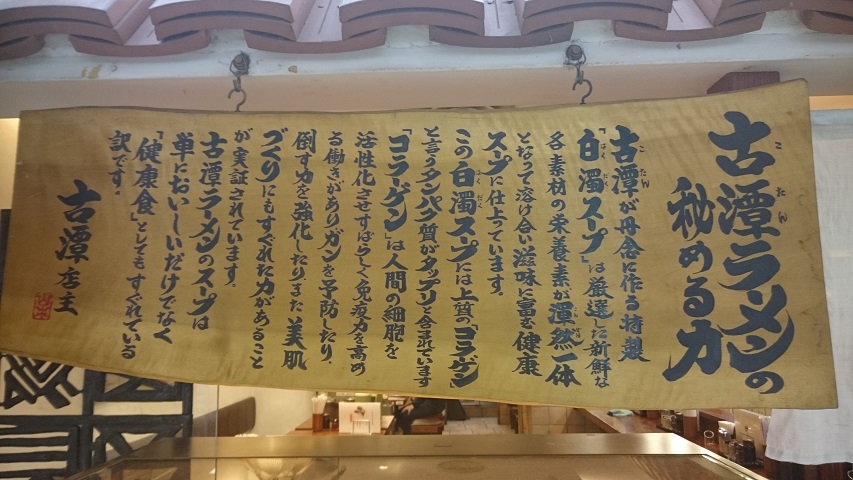 古潭ラーメンの
秘める力
古潭が丹念に作る特製
「白濁スープ」は厳選した新鮮な
各素材の栄養素が渾然一体
となって溶け合い滋味に富む健康
スープに仕上っています。
この白濁スープには上質の「コラーゲン」
と言うタンパク質がタップリと含まれています
「コラーゲン」は人間の細胞を
活性化させすばらしく免疫力を高め
る働きがありガンを予防したり、
倒す力を強化したりまた美肌
づくりにもすぐれた力があること
が実証されています。
古潭ラーメンのスープは
単においしいだけでなく
「健康食」としてもすぐれている
訳です。
古潭店主